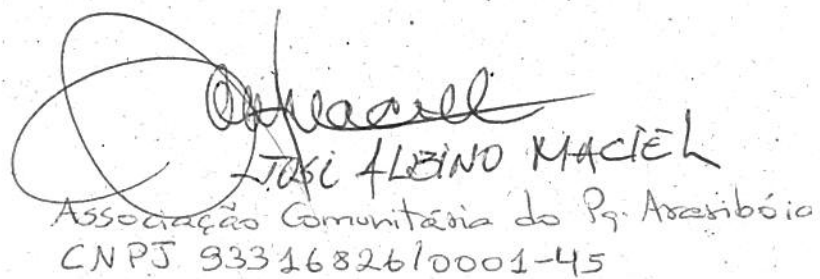 JOSÉ ALBINO MACIEL
Associação Comunitária do Pq. Araribóia
CNPJ 93316826/0001-45